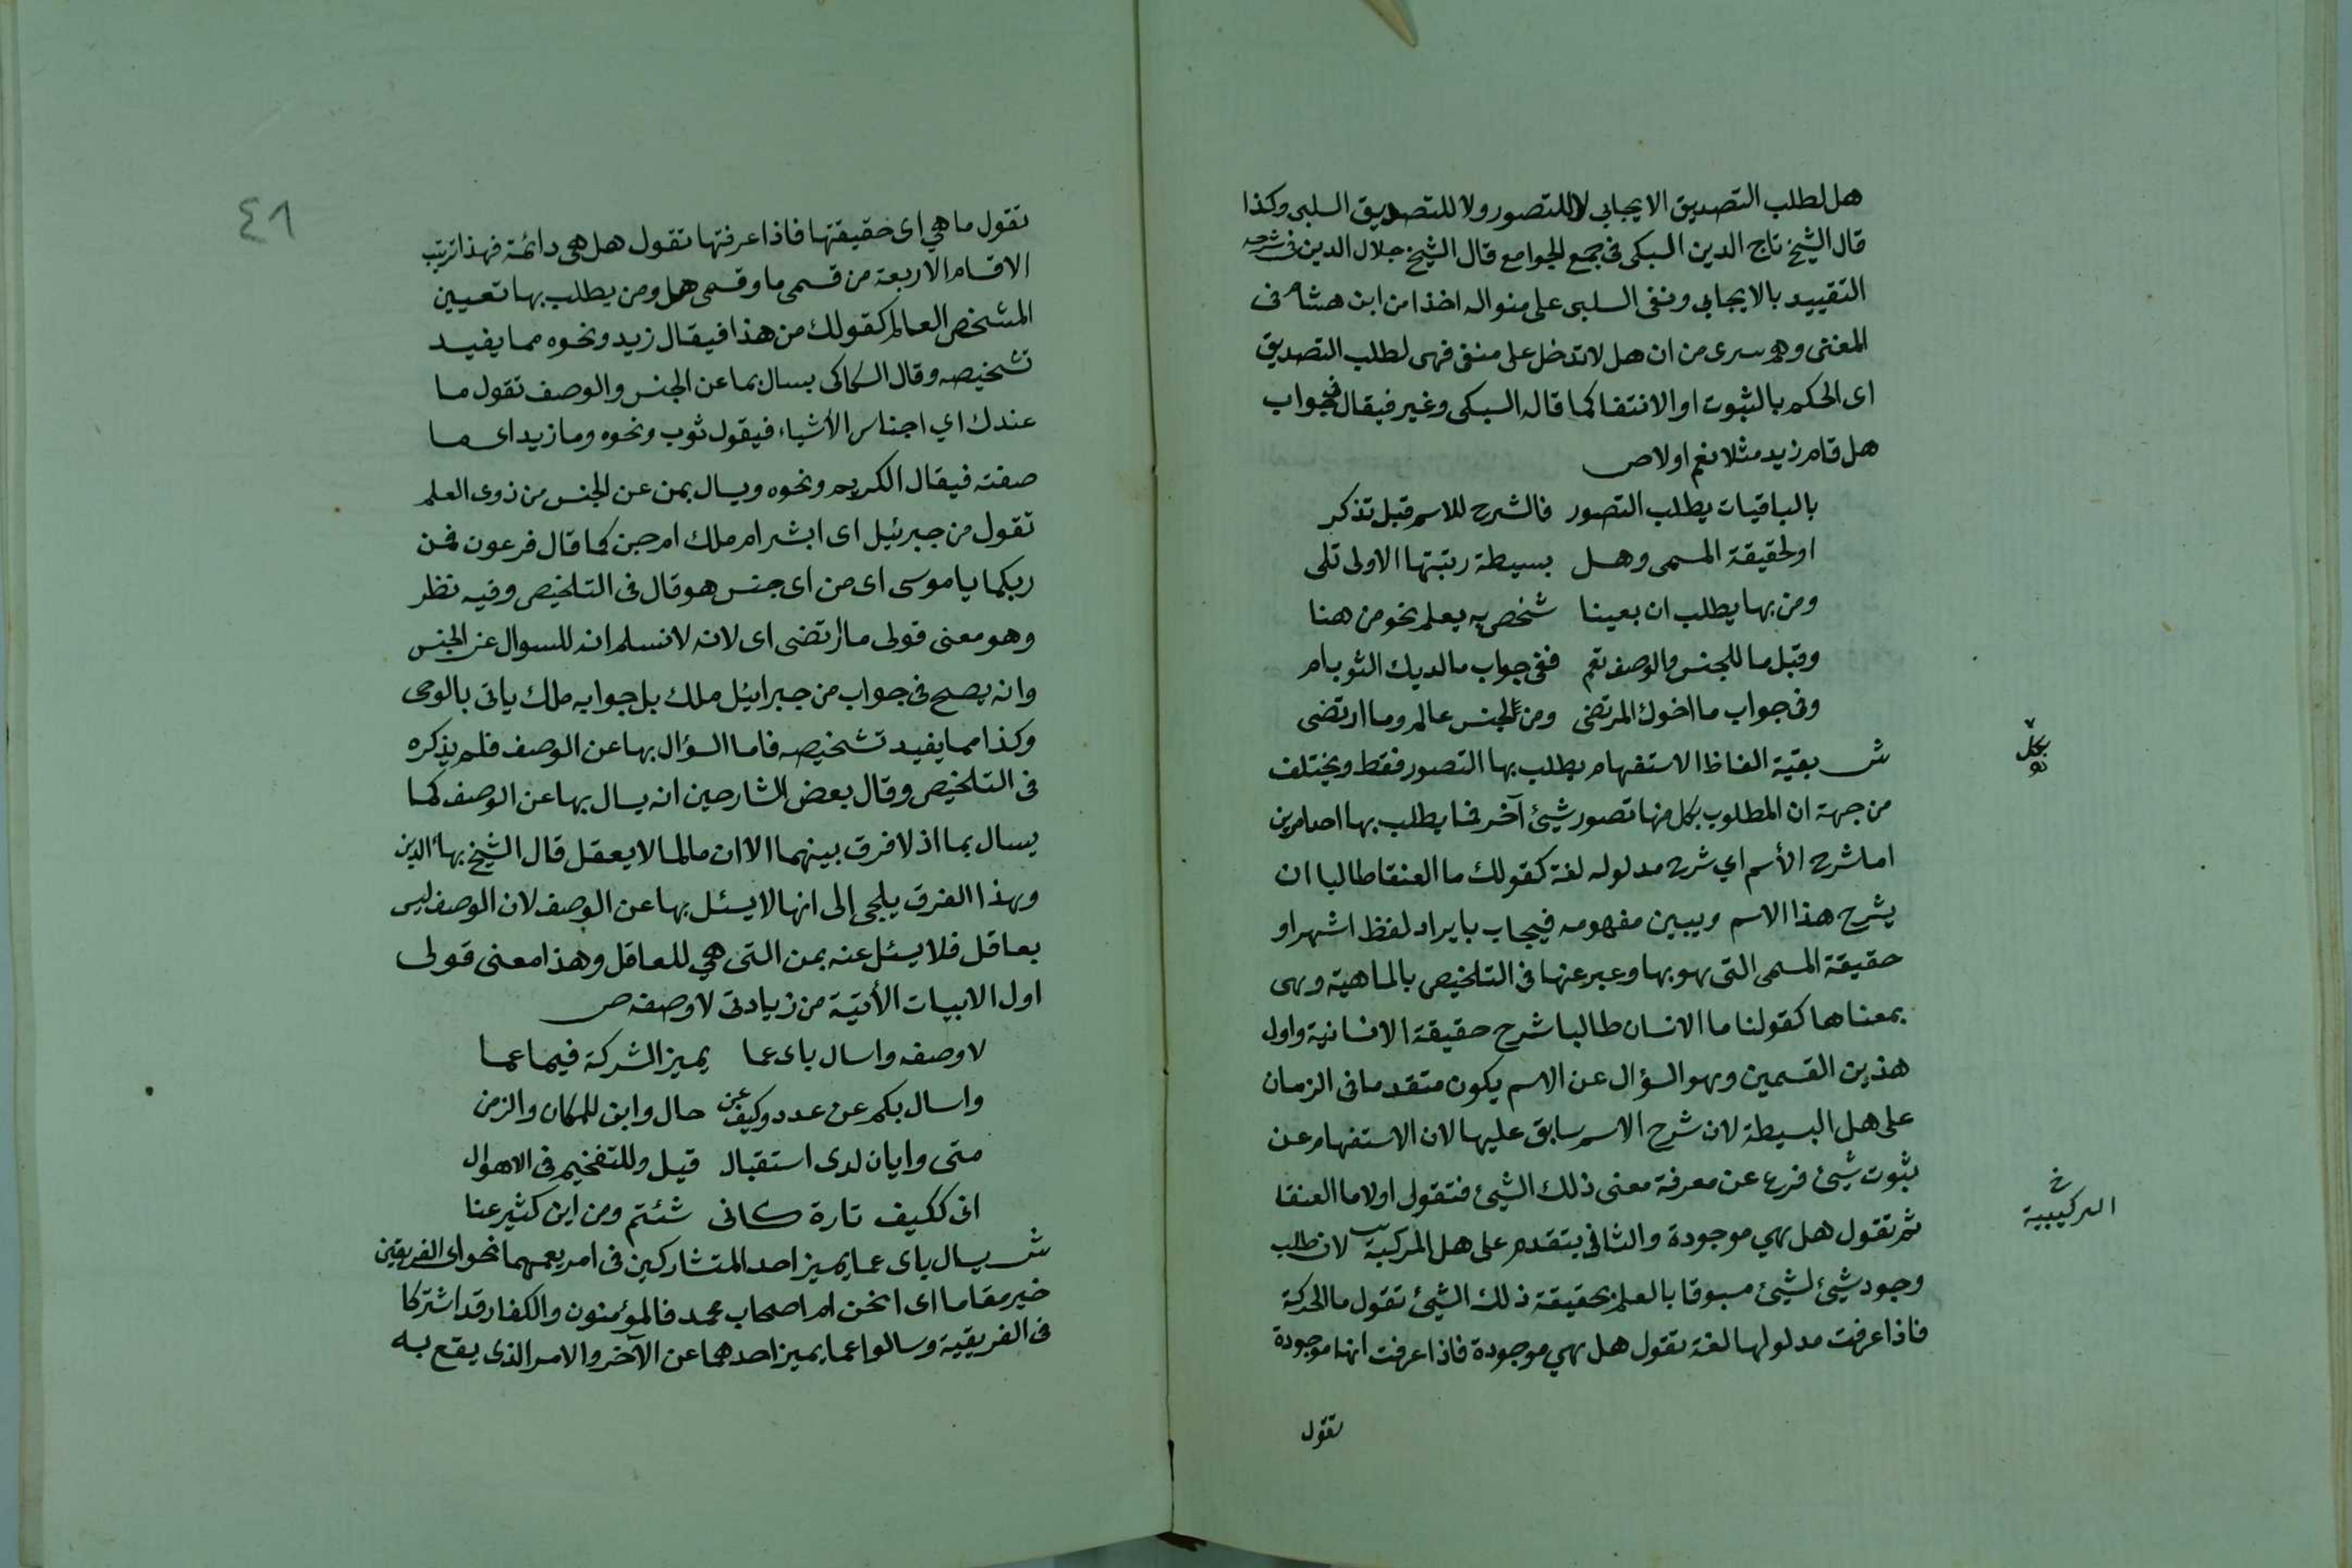 هل لطلب التصديق الايجابي لا للتصور ولا للتصديق السلبى وكذا
قال الشيخ تاج الدين السبكى فى جمع الجوامع قال الشيخ جلال الدين فى شرحه
التقييد بالايجابى ونفى السلبى على منواله اخذا من ابن هشام فى
المغنى وهو سرى من ان هل لا تدخل على منفى فهى لطلب التصديق
اى الحكم بالثبوت او الانتفا كما قاله السبكى وغير فيقال فى جواب
هل قام زيد مثلا نعم اولا ص
بالباقيات يطلب التصور فالشرح للاسم قبل تذكر
او لحقيقة المسمى وهل بسيطة رتبتها الاولى تلى
ومن بها يطلب ان يعينا شخص به يعلم نحو من هنا
وقيل ما للجنس والوصف تعم ففى جواب ما لديك الثوب ام
وفى جواب ما اخوك المرتضى ومن لجنس عالم وما ارتضى
ش بقية الفاظ الاستفهام يطلب بها التصور فقط ويختلف
بكل
من جهة ان المطلوب بكل منها تصور شيئ آخر فما يطلب بها احد امرين
اما شرح الأسم اي شرح مدلوله لغة كقولك ما العنقا طالبا ان
يشرح هذا الاسم ويبين مفهومه فيجاب بايراد لفظ اشهر او
حقيقة المسمى التى هو بها وعبر عنها فى التلخيص بالماهية وهى
بمعناها كقولنا ما الانسان طالبا شرح حقيقة الانسانية واول
هذين القسمين وهو السؤال عن الاسم يكون متقدما فى الزمان
على هل البسيطة لان شرح الاسم سابق عليها لان الاستفهام عن
ثبوت شيئ فرع عن معرفة معنى ذلك الشيئ فتقول اولا ما العنقا
ثم تقول هل هي موجودة والثانى يتقدم على هل المركبة لان طلب
خ
التركيبية
وجود شيئ لشيئ مسبوقا بالعلم بحقيقة ذلك الشيئ تقول ما الحركة
فاذا عرفت مدلولها لغة تقول هل هي موجودة فاذا عرفت انها موجودة
تقول
٤٦
تقول ما هي اى حقيقتها فاذا عرفتها تقول هل هى دائمة فهذا ترتيب
الاقسام الاربعة من قسمى ما وقسمى هل ومن يطلب بها تعيين
المشخص العالم كقولك من هذا فيقال زيد ونحوه مما يفيد
تشخيصه وقال السكاكى يسال بما عن الجنس والوصف تقول ما
عندك اي اجناس الأشياء فيقول ثوب ونحوه وما زيد اى ما
صفته فيقال الكريم ونحوه ويسال بمن عن الجنس من ذوى العلم
تقول من جبرئيل اى ابشر ام ملك ام جن كما قال فرعون فمن
ربكما يا موسى اى من اى جنس هو قال فى التلخيص وفيه نظر
وهو معنى قولى ما ارتضى اى لانه لا نسلم انه للسوال عن الجنس
وانه يصح فى جواب من جبرائيل ملك بل جوابه ملك ياتى بالوحى
وكذا مما يفيد تشخيصه فاما السؤال بها عن الوصف فلم يذكره
فى التلخيص وقال بعض الشارحين انه يسال بها عن الوصف كما
يسال بما اذ لا فرق بينهما الا ان ما لما لا يعقل قال الشيخ بهاء الدين
وبهذا الفرق يلجى إلى انها لا يسئل بها عن الوصف لان الوصف ليس
بعاقل فلا يسئل عنه بمن التى هي للعاقل وهذا معنى قولى
اول الابيات الأتية من زيادتى لا وصفه ص
لا وصفه واسال باى عما يميز الشركة فيما عما
واسال بكم عن عدد وكيف عن حال واين للمكان والزمن
متى وايان لدى استقبال قيل وللتفخيم فى الاهوال
انى ككيف تارة كانى شئتم ومن اين كثير عنا
ش يسال باى عما يميز احد المتشاركين فى امر يعمهما نحو اى الفريقين
خير مقاما اى انحن ام اصحاب محمد فالمؤمنون والكفار قد اشتركا
فى الفريقية وسالوا عما يميز احدهما عن الآخر والامر الذى يقع به